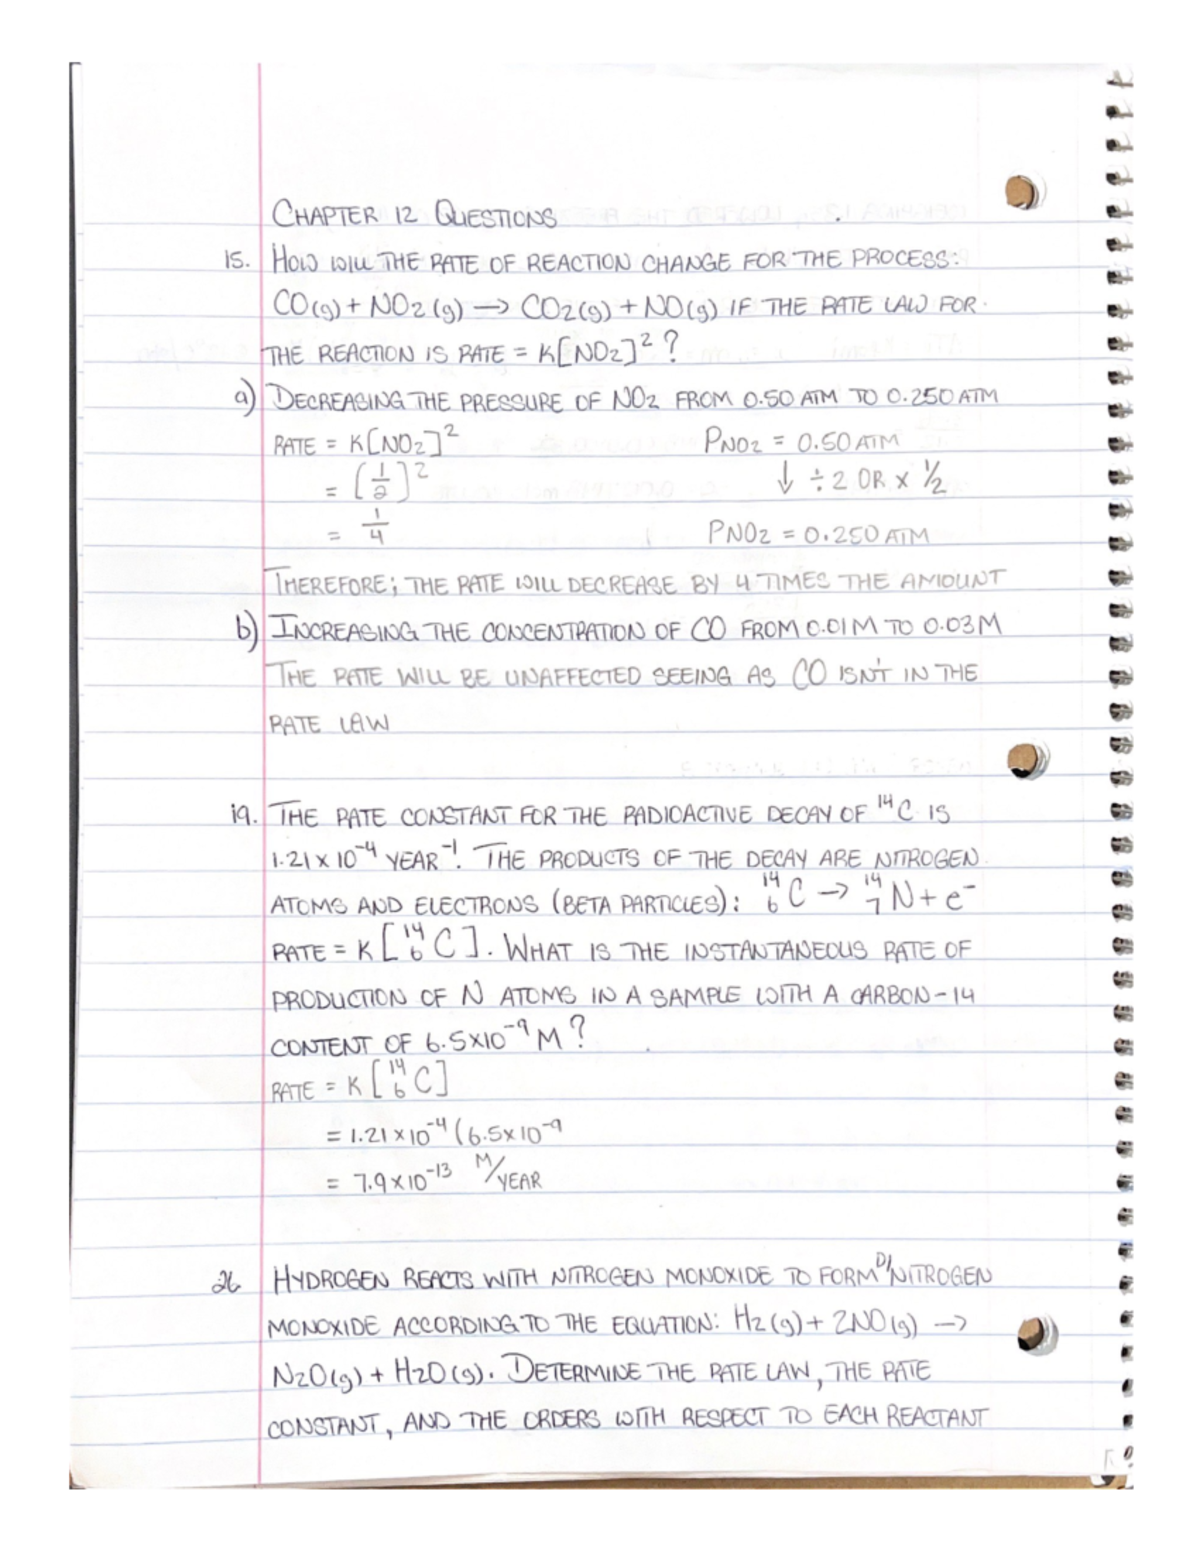 CHAPTER 12 QUESTIONS
15. HOW WILL THE RATE OF REACTION CHANGE FOR THE PROCESS:
CO(g) + NO2(g) → CO2(g) + NO(g) IF THE RATE LAW FOR
THE REACTION IS RATE = K[NO2]²?
a) DECREASING THE PRESSURE OF NO2 FROM 0.50 ATM TO 0.250 ATM
RATE = K[NO2]² PNO2 = 0.50 ATM
= (1/2)² ↓ ÷2 OR x 1/2
= 1/4 PNO2 = 0.250 ATM
THEREFORE; THE RATE WILL DECREASE BY 4 TIMES THE AMOUNT
b) INCREASING THE CONCENTRATION OF CO FROM 0.01M TO 0.03M
THE RATE WILL BE UNAFFECTED SEEING AS CO ISN'T IN THE
RATE LAW
19. THE RATE CONSTANT FOR THE RADIOACTIVE DECAY OF ¹⁴C IS
1.21 x 10⁻⁴ YEAR⁻¹. THE PRODUCTS OF THE DECAY ARE NITROGEN
ATOMS AND ELECTRONS (BETA PARTICLES): ¹⁴₆C → ¹⁴₇N + e⁻
RATE = K[¹⁴₆C]. WHAT IS THE INSTANTANEOUS RATE OF
PRODUCTION OF N ATOMS IN A SAMPLE WITH A CARBON-14
CONTENT OF 6.5x10⁻⁹ M?
RATE = K[¹⁴₆C]
= 1.21 x 10⁻⁴ (6.5x10⁻⁹
= 7.9x10⁻¹³ M/YEAR
26 HYDROGEN REACTS WITH NITROGEN MONOXIDE TO FORM DINITROGEN
MONOXIDE ACCORDING TO THE EQUATION: H2(g) + 2NO(g) →
N2O(g) + H2O(g). DETERMINE THE RATE LAW, THE RATE
CONSTANT, AND THE ORDERS WITH RESPECT TO EACH REACTANT